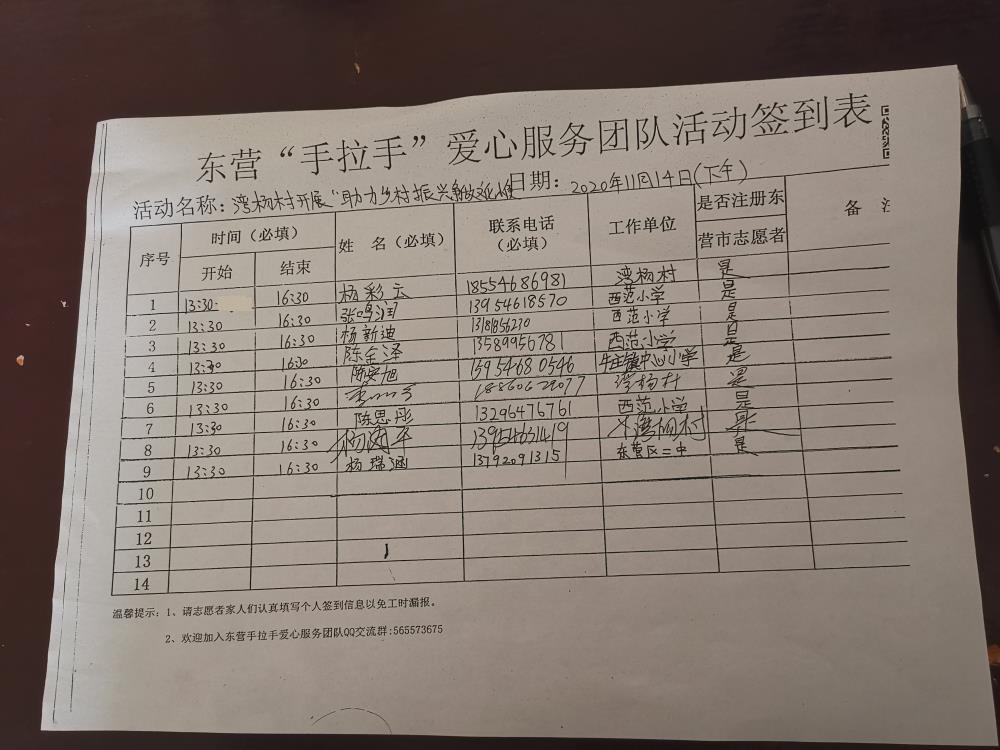 东营“手拉手”爱心服务团队活动签到表
活动名称：湾杨村开展“助力乡村振兴 日期：2020年11月14日(下午)
序号 时间（必填） 姓 名（必填） 联系电话（必填） 工作单位 是否注册东营市志愿者 备 注
开始 结束
1 13:30 16:30 杨彩云 18554686981 湾杨村 是
2 13:30 16:30 张鸣润 13954618570 西范小学 是
3 13:30 16:30 杨新迪 13181856230 西范小学 是
4 13:30 1630 陈金泽 13589956781 西范小学 是
5 13:30 16:30 陈安旭 13954680546 牛庄镇中心小学 是
6 13:30 16:30 18860629077 湾杨村 是
7 13:30 16:30 陈思彤 13296476761 西范小学 是
8 13:30 16:30 湾杨村 是
9 13:30 16:30 杨瑞涵 13792091315 东营区二中 是
10
11
12
13
14
温馨提示：1、请志愿者家人们认真填写个人签到信息以免工时漏报。
2、欢迎加入东营手拉手爱心服务团队QQ交流群:565573675